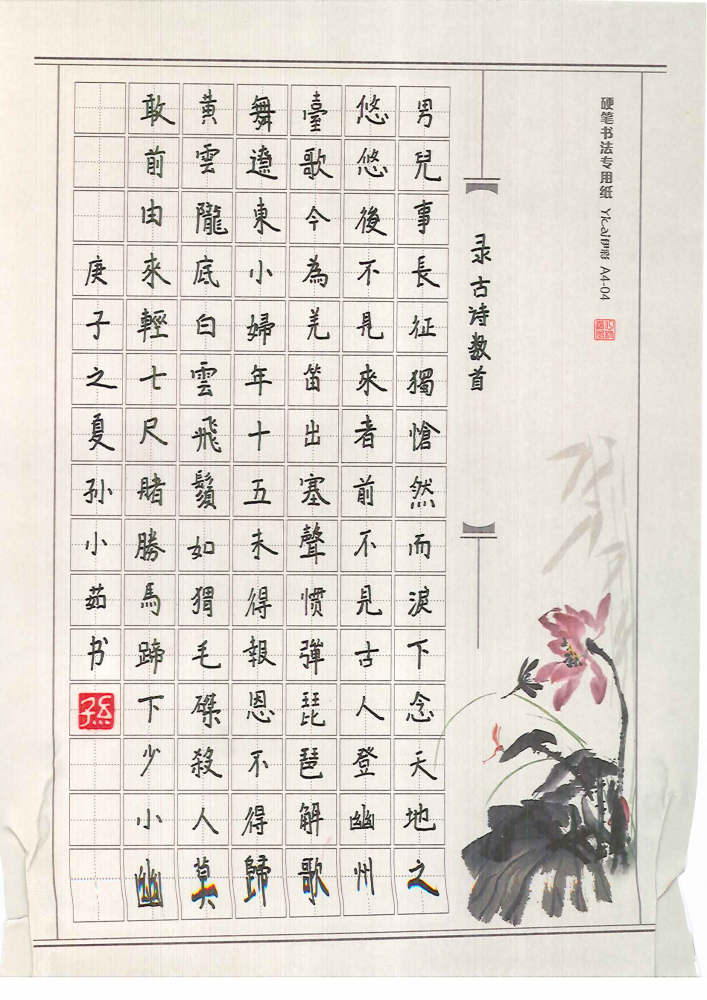 硬笔书法专用纸 A4-04
录古诗数首
男兒事長征獨愴然而淚下念天地之
悠悠後不見來者前不見古人登幽州
臺歌今為羌笛出塞聲惯彈琵琶解歌
舞遼東小婦年十五未得報恩不得歸
黄雲隴底白雲飛鬚如猬毛磔殺人莫
敢前由來輕七尺賭勝馬蹄下少小幽
庚子之夏孙小茹书
孫